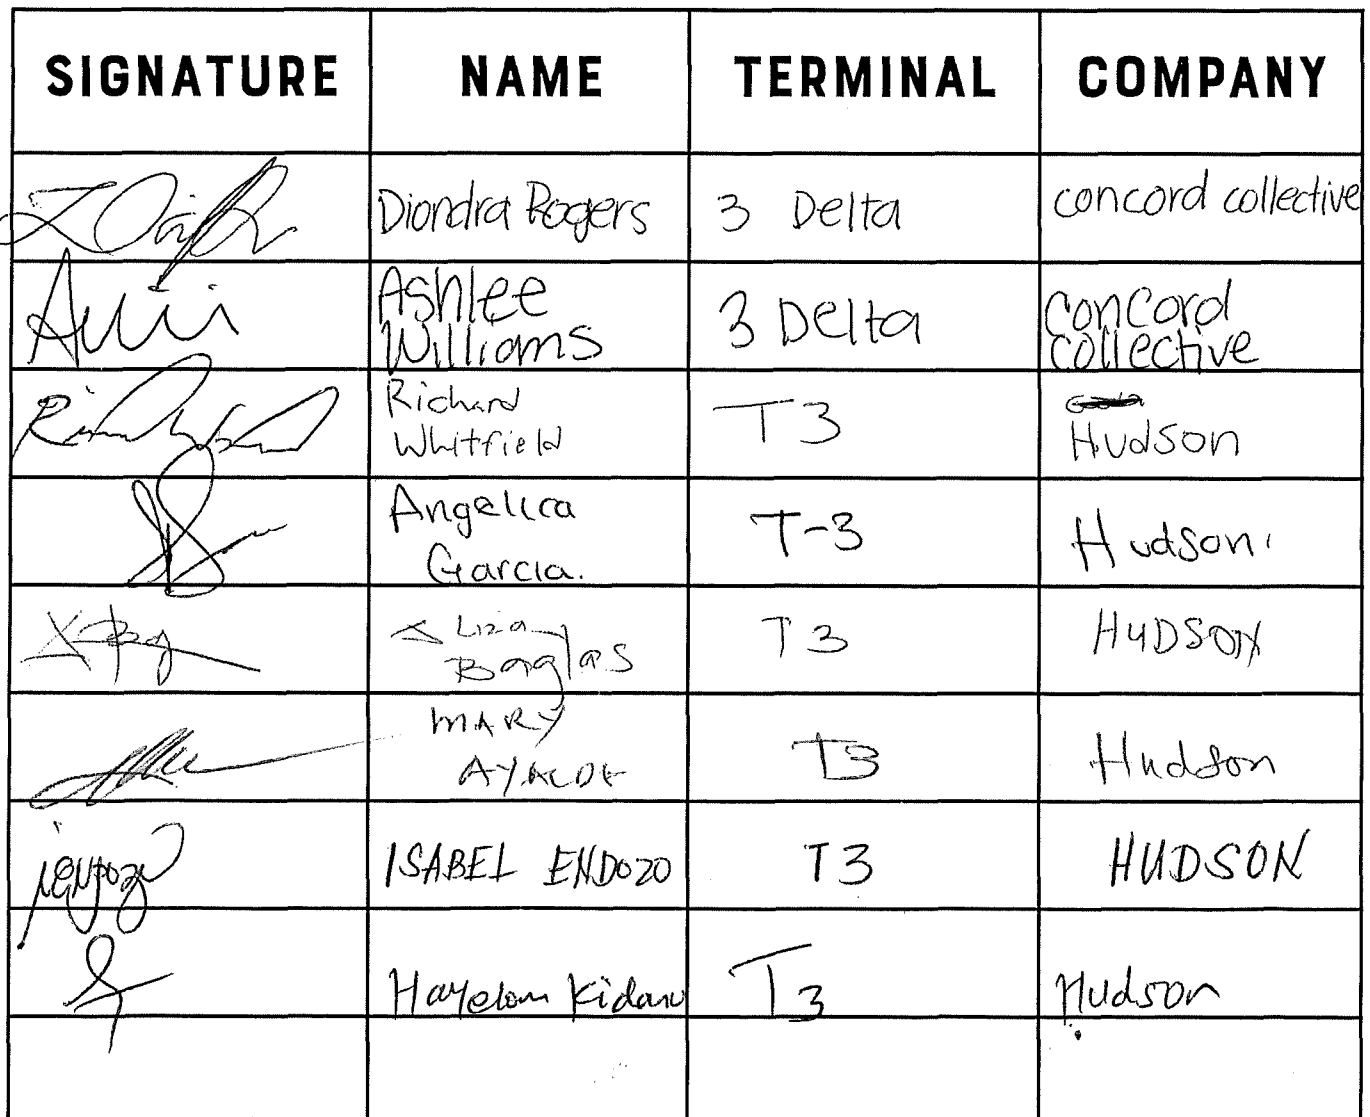 SIGNATURE NAME TERMINAL COMPANY
Diondra Rogers 3 Delta concord collective
Ashlee
Williams 3 Delta concord
collective
Richard
Whitfield T3 Hudson
Angelica
Garcia. T-3 Hudson
Liza
Baglas T3 HUDSON
MARY
AYALDE T3 Hudson
ISABEL ENDOZO T3 HUDSON
Hayelom Kidanu T3 Hudson